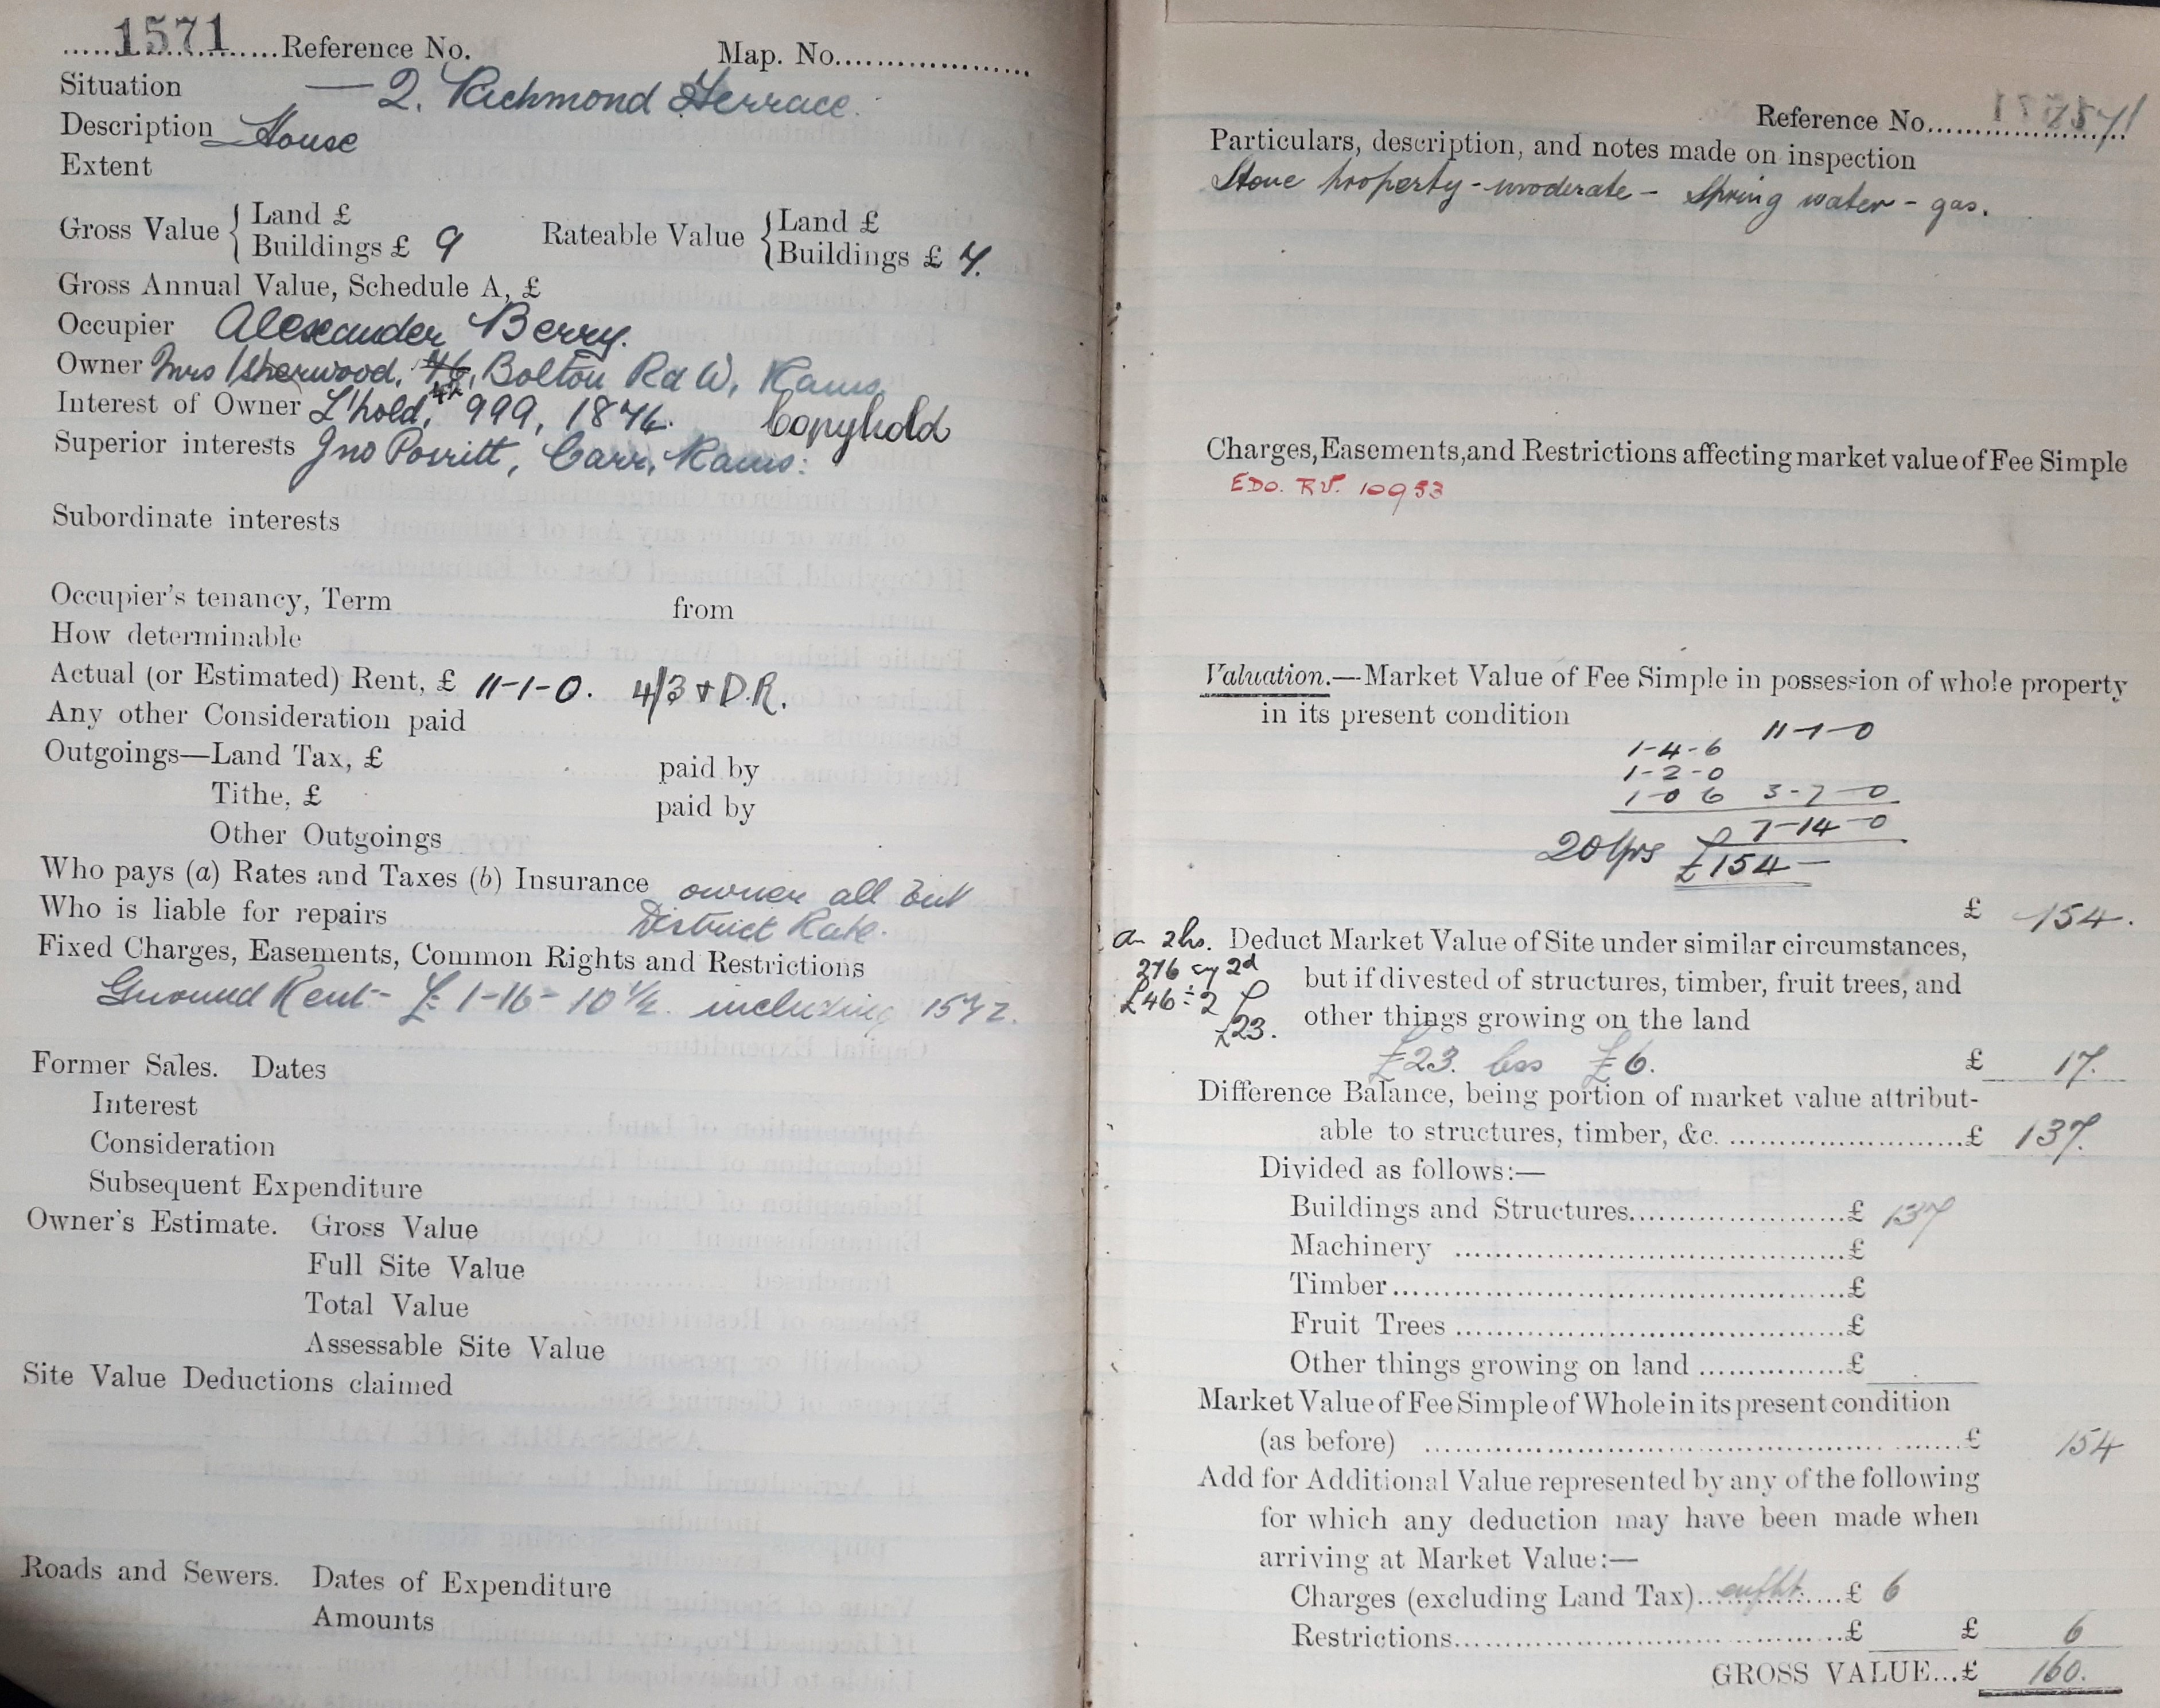 1571 Reference No. Map. No.
Situation — 2. Richmond Terrace.
Description House
Extent
Gross Value { Land £
Buildings £ 9
Rateable Value { Land £
Buildings £ 7.
Gross Annual Value, Schedule A, £
Occupier Alexander Berry.
Owner Mrs Isherwood, 46, 42 Bolton Rd W, Rams
Interest of Owner L'hold, 999, 1874. Copyhold
Superior interests Jno Porritt, Carr, Rams:
Subordinate interests
Occupier's tenancy, Term from
How determinable
Actual (or Estimated) Rent, £ 11-1-0. 4/3 + D.R.
Any other Consideration paid
Outgoings—Land Tax, £ paid by
Tithe, £ paid by
Other Outgoings
Who pays (a) Rates and Taxes (b) Insurance owner all but
Who is liable for repairs District Rate.
Fixed Charges, Easements, Common Rights and Restrictions
Ground Rent - £1-16-10½ including 1572.
Former Sales. Dates
Interest
Consideration
Subsequent Expenditure
Owner's Estimate. Gross Value
Full Site Value
Total Value
Assessable Site Value
Site Value Deductions claimed
Roads and Sewers. Dates of Expenditure
Amounts
Reference No. 1571
Particulars, description, and notes made on inspection
Stone property - moderate - Spring water - gas.
Charges, Easements, and Restrictions affecting market value of Fee Simple
EDO. RV. 10953
Valuation.—Market Value of Fee Simple in possession of whole property
in its present condition
11-1-0
1-4-6
1-2-0
1 0 6 3-7-0
7-14-0
20 Yrs £154 —
£ 154.
on 2 hs. Deduct Market Value of Site under similar circumstances,
276 sy 2d but if divested of structures, timber, fruit trees, and
£46 ÷ 2 other things growing on the land
£23.
£23. less £6. £ 17.
Difference Balance, being portion of market value attribut-
able to structures, timber, &c. £ 137.
Divided as follows:—
Buildings and Structures £ 137
Machinery £
Timber £
Fruit Trees £
Other things growing on land £
Market Value of Fee Simple of Whole in its present condition
(as before) £ 154
Add for Additional Value represented by any of the following
for which any deduction may have been made when
arriving at Market Value:—
Charges (excluding Land Tax) £ 6
Restrictions £ £ 6
GROSS VALUE...£ 160.